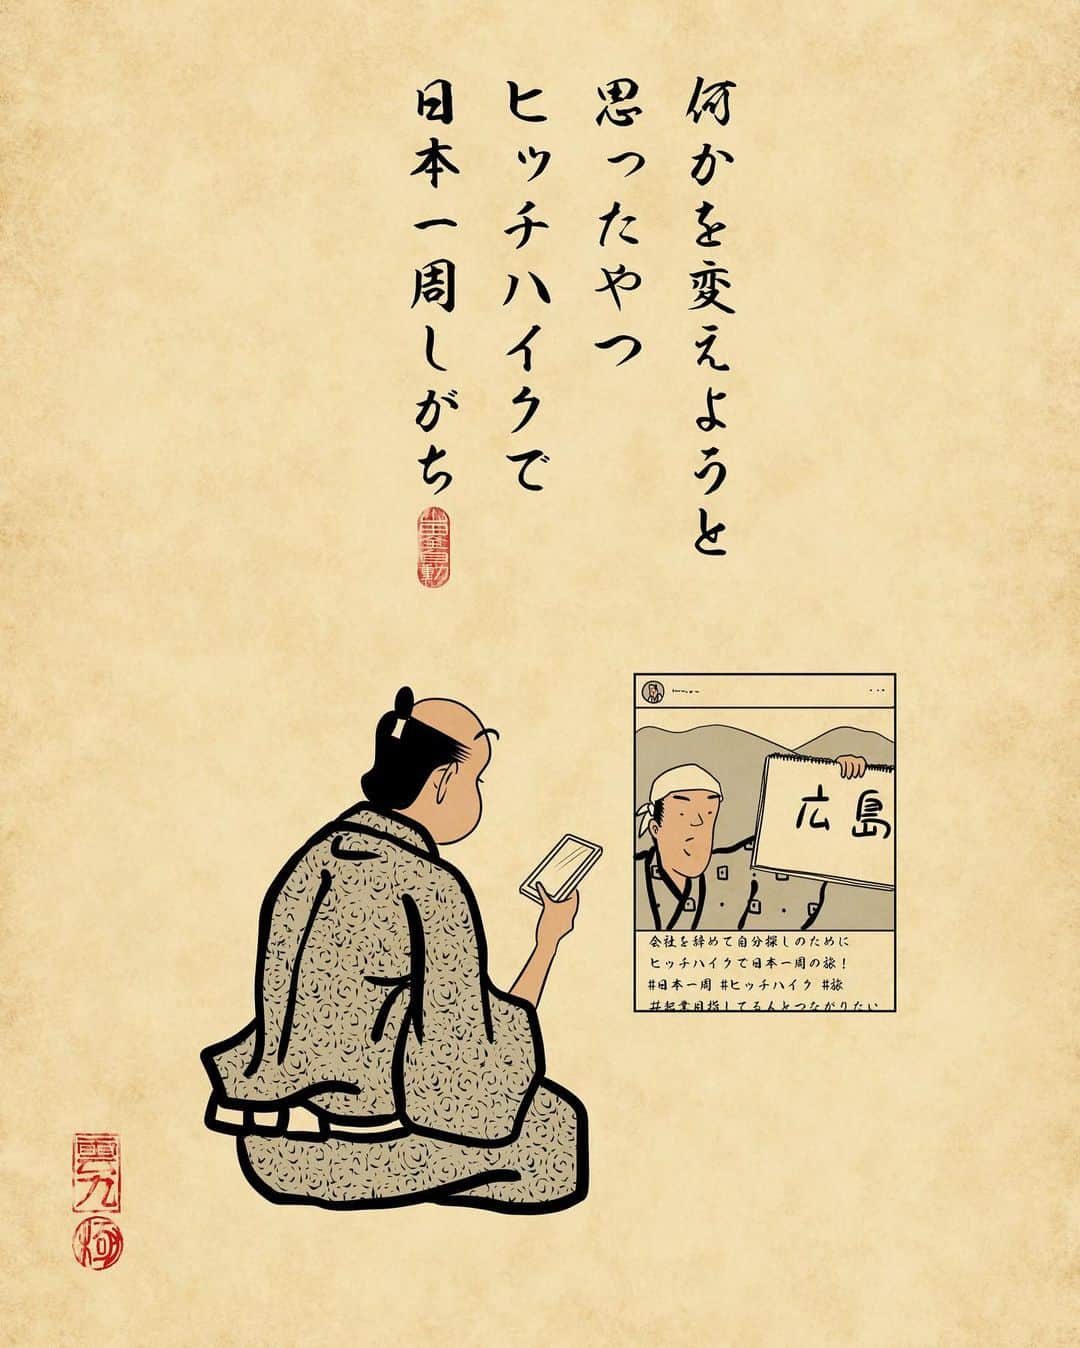 何かを変えようと
思ったやつ
ヒッチハイクで
日本一周しがち
広島
会社を辞めて自分探しのために
ヒッチハイクで日本一周の旅！
#日本一周 #ヒッチハイク #旅
#起業目指してる人とつながりたい